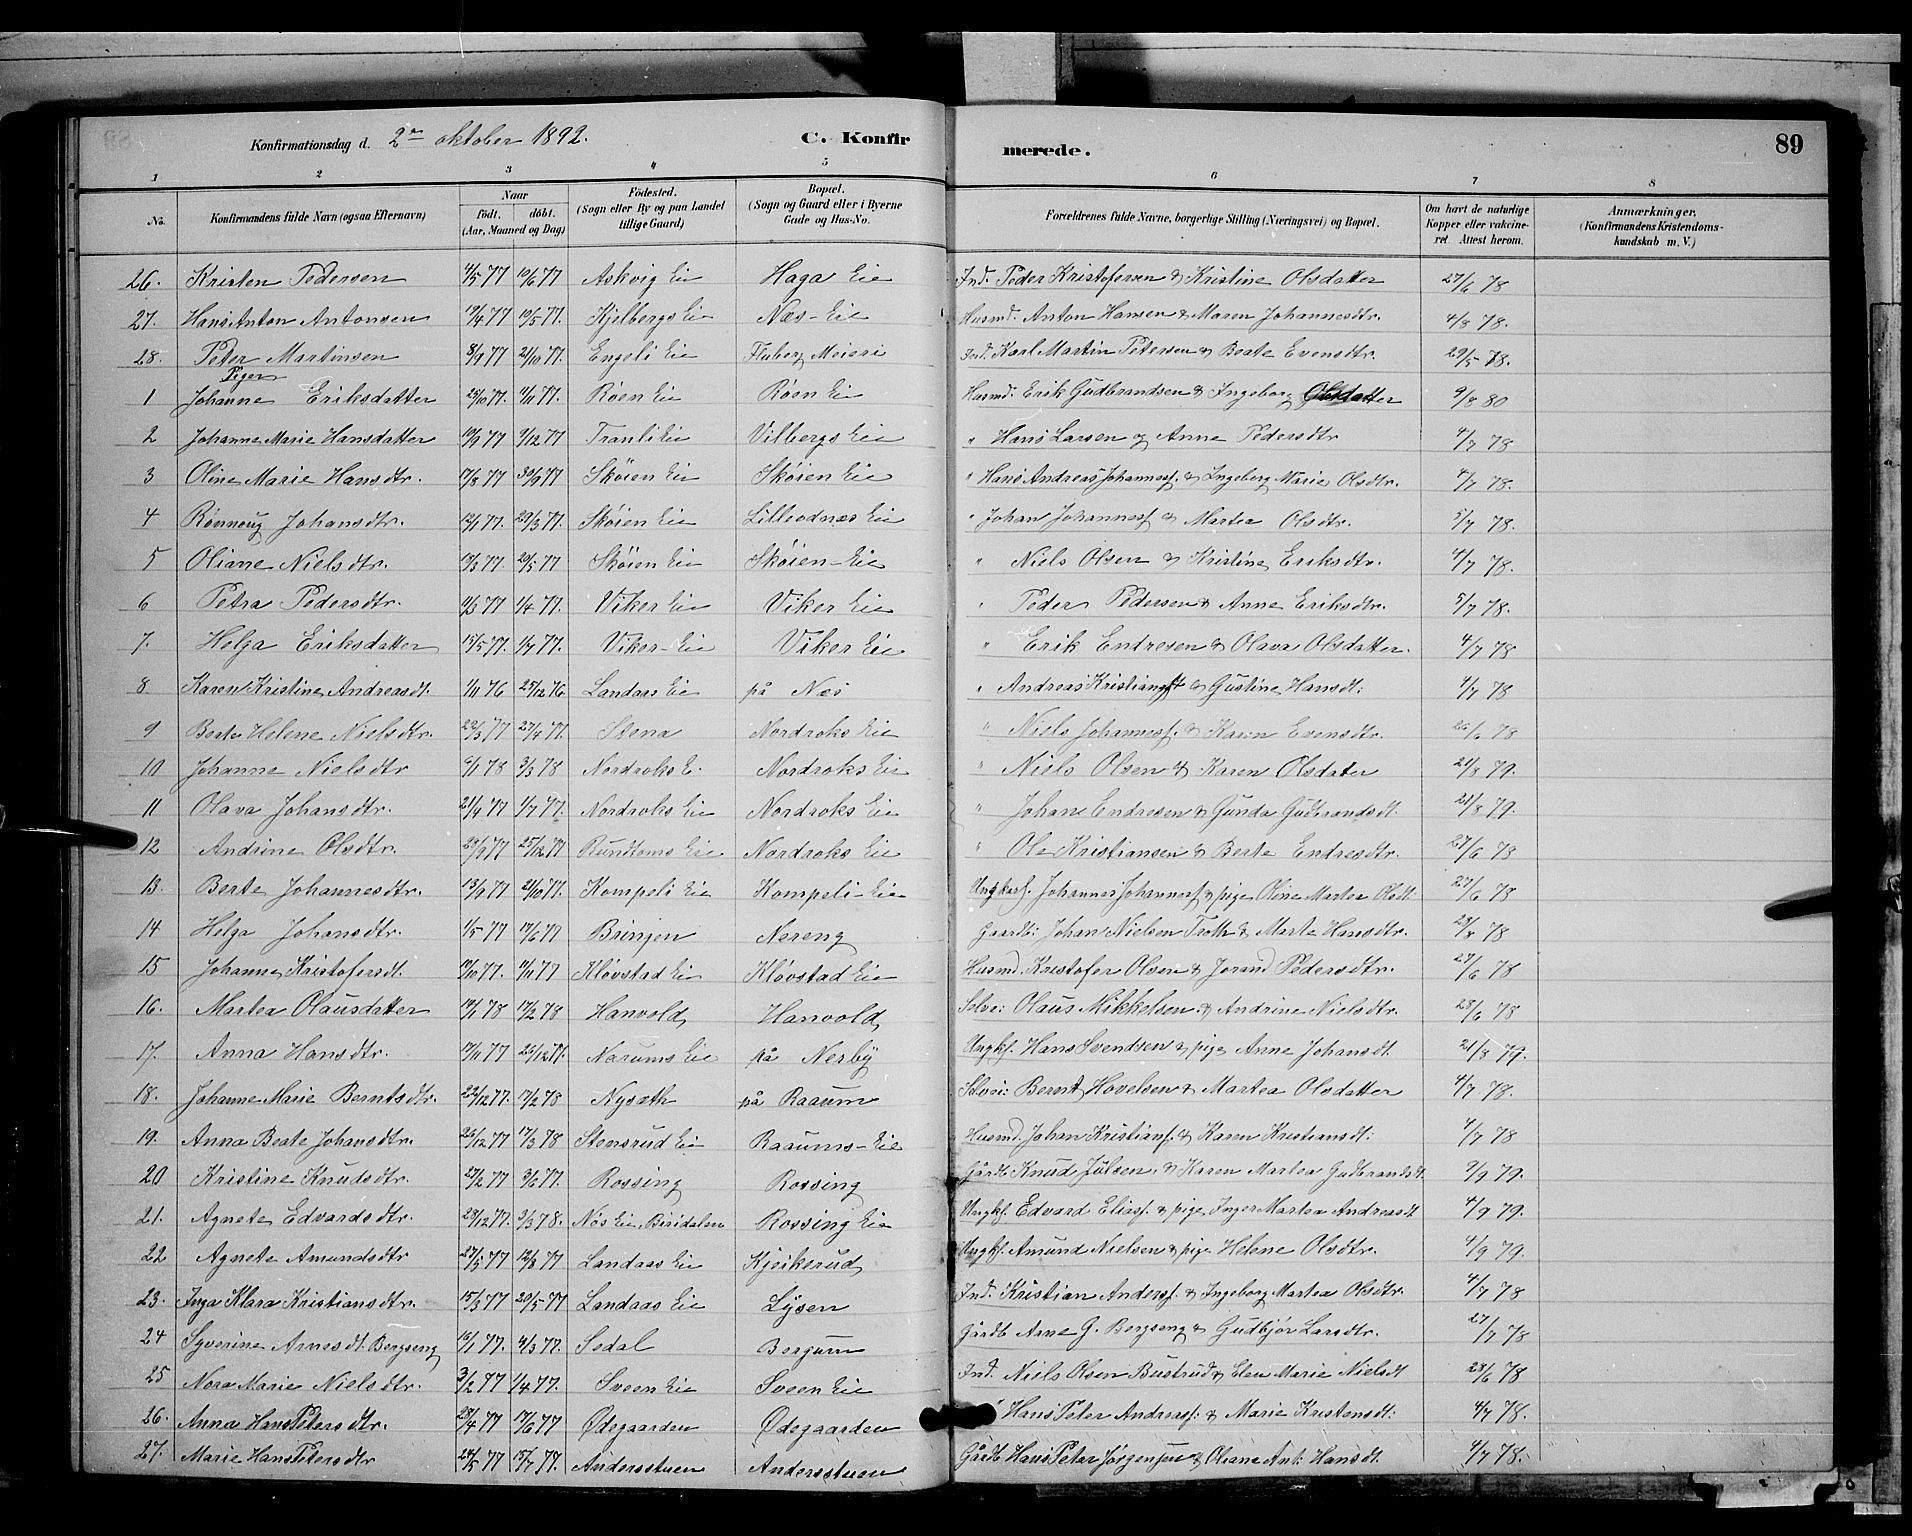 Konfirmationsdag d. 2en oktober 1892. C. Konfirmerede. 89
1 2 3 4 5 6 7 8
No. Konfirmandens fulde Navn (ogsaa Efternavn) Naar født. døbt. (Aar, Maaned og Dag) Fødested. (Sogn eller By og paa Landet tillige Gaard) Bopæl. (Sogn og Gaard eller i Byerne Gade og Hus-No. Forældrenes fulde Navne, borgerlige Stilling (Næringsvei) og Bopæl. Om havt de naturlige Kopper eller vakcineret. Attest herom. Anmærkninger, (Konfirmandens Kristendomskundskab m. V.)
26. Kristen Pedersen 4/5 77 10/6 77 Askvig Eie Haga Eie Ind. Peder Kristofersen & Kristine Olsdatter 27/6 78
27. Hans Anton Antonsen 19/4 77 10/5 77. Kjelbergs Eie Næs-Eie Husmd. Anton Hansen & Maren Johannesdtr. 4/8 78.
28. Peter Martinsen 8/9 77 21/10 77. Engeli Eie Fluberg Meieri Ind. Karl Martin Petersen & Beate Evensdtr. 29/5 78.
Piger
1 Johanne Eriksdatter 28/10 77. 4/11 77. Røen Eie Røen Eie Husmd. Erik Gudbrandsen & Ingeborg Olsdatter 9/8 80
2 Johanne Marie Hansdatter 19/9 77 9/12 77 Tranli Eie Vilbergs Eie " Hans Larsen og Anne Pedersdtr 4/7 78
3 Oline Marie Hansdtr. 17/8 77 30/9 77 Skøien Eie Skøien Eie " Hans Andreas Johannesf. & Ingeborg Marie Olsdtr. 4/7 78.
4 Rønnoug Johansdtr. 12/1 77. 29/3 77. Skøien Eie Lilleodnæs Eie " Johan Johannesf & Martea Olsdtr. 5/7 78.
5 Oliane Nielsdtr. 19/3 77 20/5 77 Skøien Eie Skøien-Eie " Niels Olsen & Kristine Eriksdtr. 4/7 78.
6 Petra Pedersdtr. 11/2 77 1/4 77. Viker Eie Viker Eie " Peder Pedersen & Anne Eriksdtr. 5/7 78.
7. Helga Eriksdatter 15/5 77. 1/7 77. Viker-Eie Viker Eie " Erik Endresen & Olava Olsdatter. 4/7 78
8 Karen Kristine Andreasdt. 1/11 76 25/12 76. Landaas Eie på Næs " Andreas Kristiansf & Gustine Hansdt: 4/7 78
9 Berte Helene Nielsdtr. 22/3 77 27/4 77. Stena Nordroks Eie " Niels Johannesf. & Karen Evensdtr. 26/6 78
10 Johanne Nielsdtr 9/1 78 3/3 78 Nordroks E. Nordroks Eie " Niels Olsen & Karen Olsdater 21/8 79.
11 Olava Johansdtr. 21/4 77 1/7 77. Nordroks Eie Nordroks Eie " Johan Endresen & Gunda Gudbrandsdt. 21/8 79.
12 Andrine Olsdtr. 29/9 77 25/12 77 Rundtoms Eie Nordroks Eie " Ole Kristiansen & Berte Endresdtr. 27/6 78
13. Berte Johannesdtr. 13/9 77 21/10 77. Kompeli Eie Kompeli-Eie Ungkarf. Johannes Johannesf & pige Oline Martea Olsdt: 27/6 78
14 Helga Johansdtr. 1/5 77 17/6 77 Bringen Nereng Gaardb: Johan Nielsen Troth & Marte Hansdtr. 28/8 78
15 Johanne Kristofersdt. 10/10 77. 11/11 77 Kløvstad Eie Kløvstad Eie Husmd. Kristofer Olsen & Jorand Pedersdtr. 27/6 78
16. Martea Olausdatter 10/1 78 17/2 78 Hanvold Hanvold Selve: Olaus Mikkelsen & Andrine Nielsdtr. 28/6 78
17. Anna Hansdtr. 19/11 77 26/12 77. Narums Eie på Nerby Ungkf. Hans Svendsen & pige Anne Johansdt. 21/8 79.
18. Johanne Marie Berntsdtr. 22/12 77. 17/2 78 Nysæth på Raaum Selvei: Bernt Hovelsen & Martea Olsdatter 4/7 78.
19. Anna Beate Johansdtr. 26/12 77 17/3 78 Stensrud Eie Raaums-Eie Husmd. Johan Kristiansf. & Karen Kristiansdt. 4/7 78
20 Kristine Knudsdtr. 27/2 77 3/6 77. Rossing Rossing Gårdb Knud Julsen. & Karen Martea Gudbrandsdt. 9/9 79.
21. Agnete Edvardsdtr. 28/12 77. 3/3 78. Nøs Eie, Biridalen Rossing Eie Ungkf. Edvard Eliasf. & pige Inger Martea Andreasdt 4/9 79.
22 Agnete Amundsdtr 27/5 77 12/8 77 Landaas Eie Kjeikerud Ungkf. Amund Nielsen & pige Helene Olsdtr. 4/9 79.
23. Inga Klara Kristiansdtr. 15/3 77 20/5 77 Landaas Eie Lysen Ind. Kristian Andersf. & Ingeborg Martea Olsdtr. 4/7 78
24 Syverine Arnesdt. Bergseng 15/1 77. 4/3 77. Sedal Bergum Gårdb Arne G. Bergseng & Gudbjør Larsdtr. 27/7 78
25 Nora Marie Nielsdtr. 3/2 77 1/4 77. Sveen Eie Sveen Eie Ind. Niels Olsen Bustrud & Elen Marie Nielsdt 28/6 78
26. Anna Hans Petersdtr. 29/4 77 17/6 77 Ødegaarden Ødegaarden " Hans Peter Andreasf: & Marie Kristensdt: 4/7 78.
27. Marie Hans Petersdtr 24/5 77 15/7 77. Andersstuen Andersstuen Gårdb Hans Peter Jørgensen & Oliane Ant: Hansdt. 4/7 78.